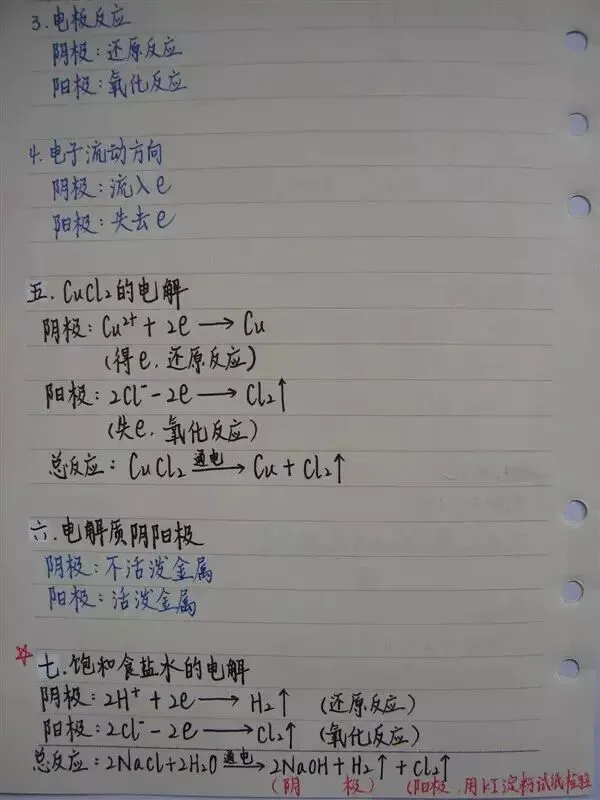 3.电极反应
阴极:还原反应
阳极:氧化反应
4.电子流动方向
阴极:流入e
阳极:失去e
五.CuCl₂的电解
阴极:Cu²⁺+2e⟶Cu
(得e.还原反应)
阳极:2Cl⁻-2e⟶Cl₂↑
(失e.氧化反应)
总反应:CuCl₂ 通电⟶ Cu+Cl₂↑
六.电解质阴阳极
阴极:不活泼金属
阳极:活泼金属
☆七.饱和食盐水的电解
阴极:2H⁺+2e⟶H₂↑ (还原反应)
阳极:2Cl⁻-2e⟶Cl₂↑ (氧化反应)
总反应:2NaCl+2H₂O 通电⟶ 2NaOH+H₂↑+Cl₂↑
(阴 极) (阳极.用KI淀粉试纸检验